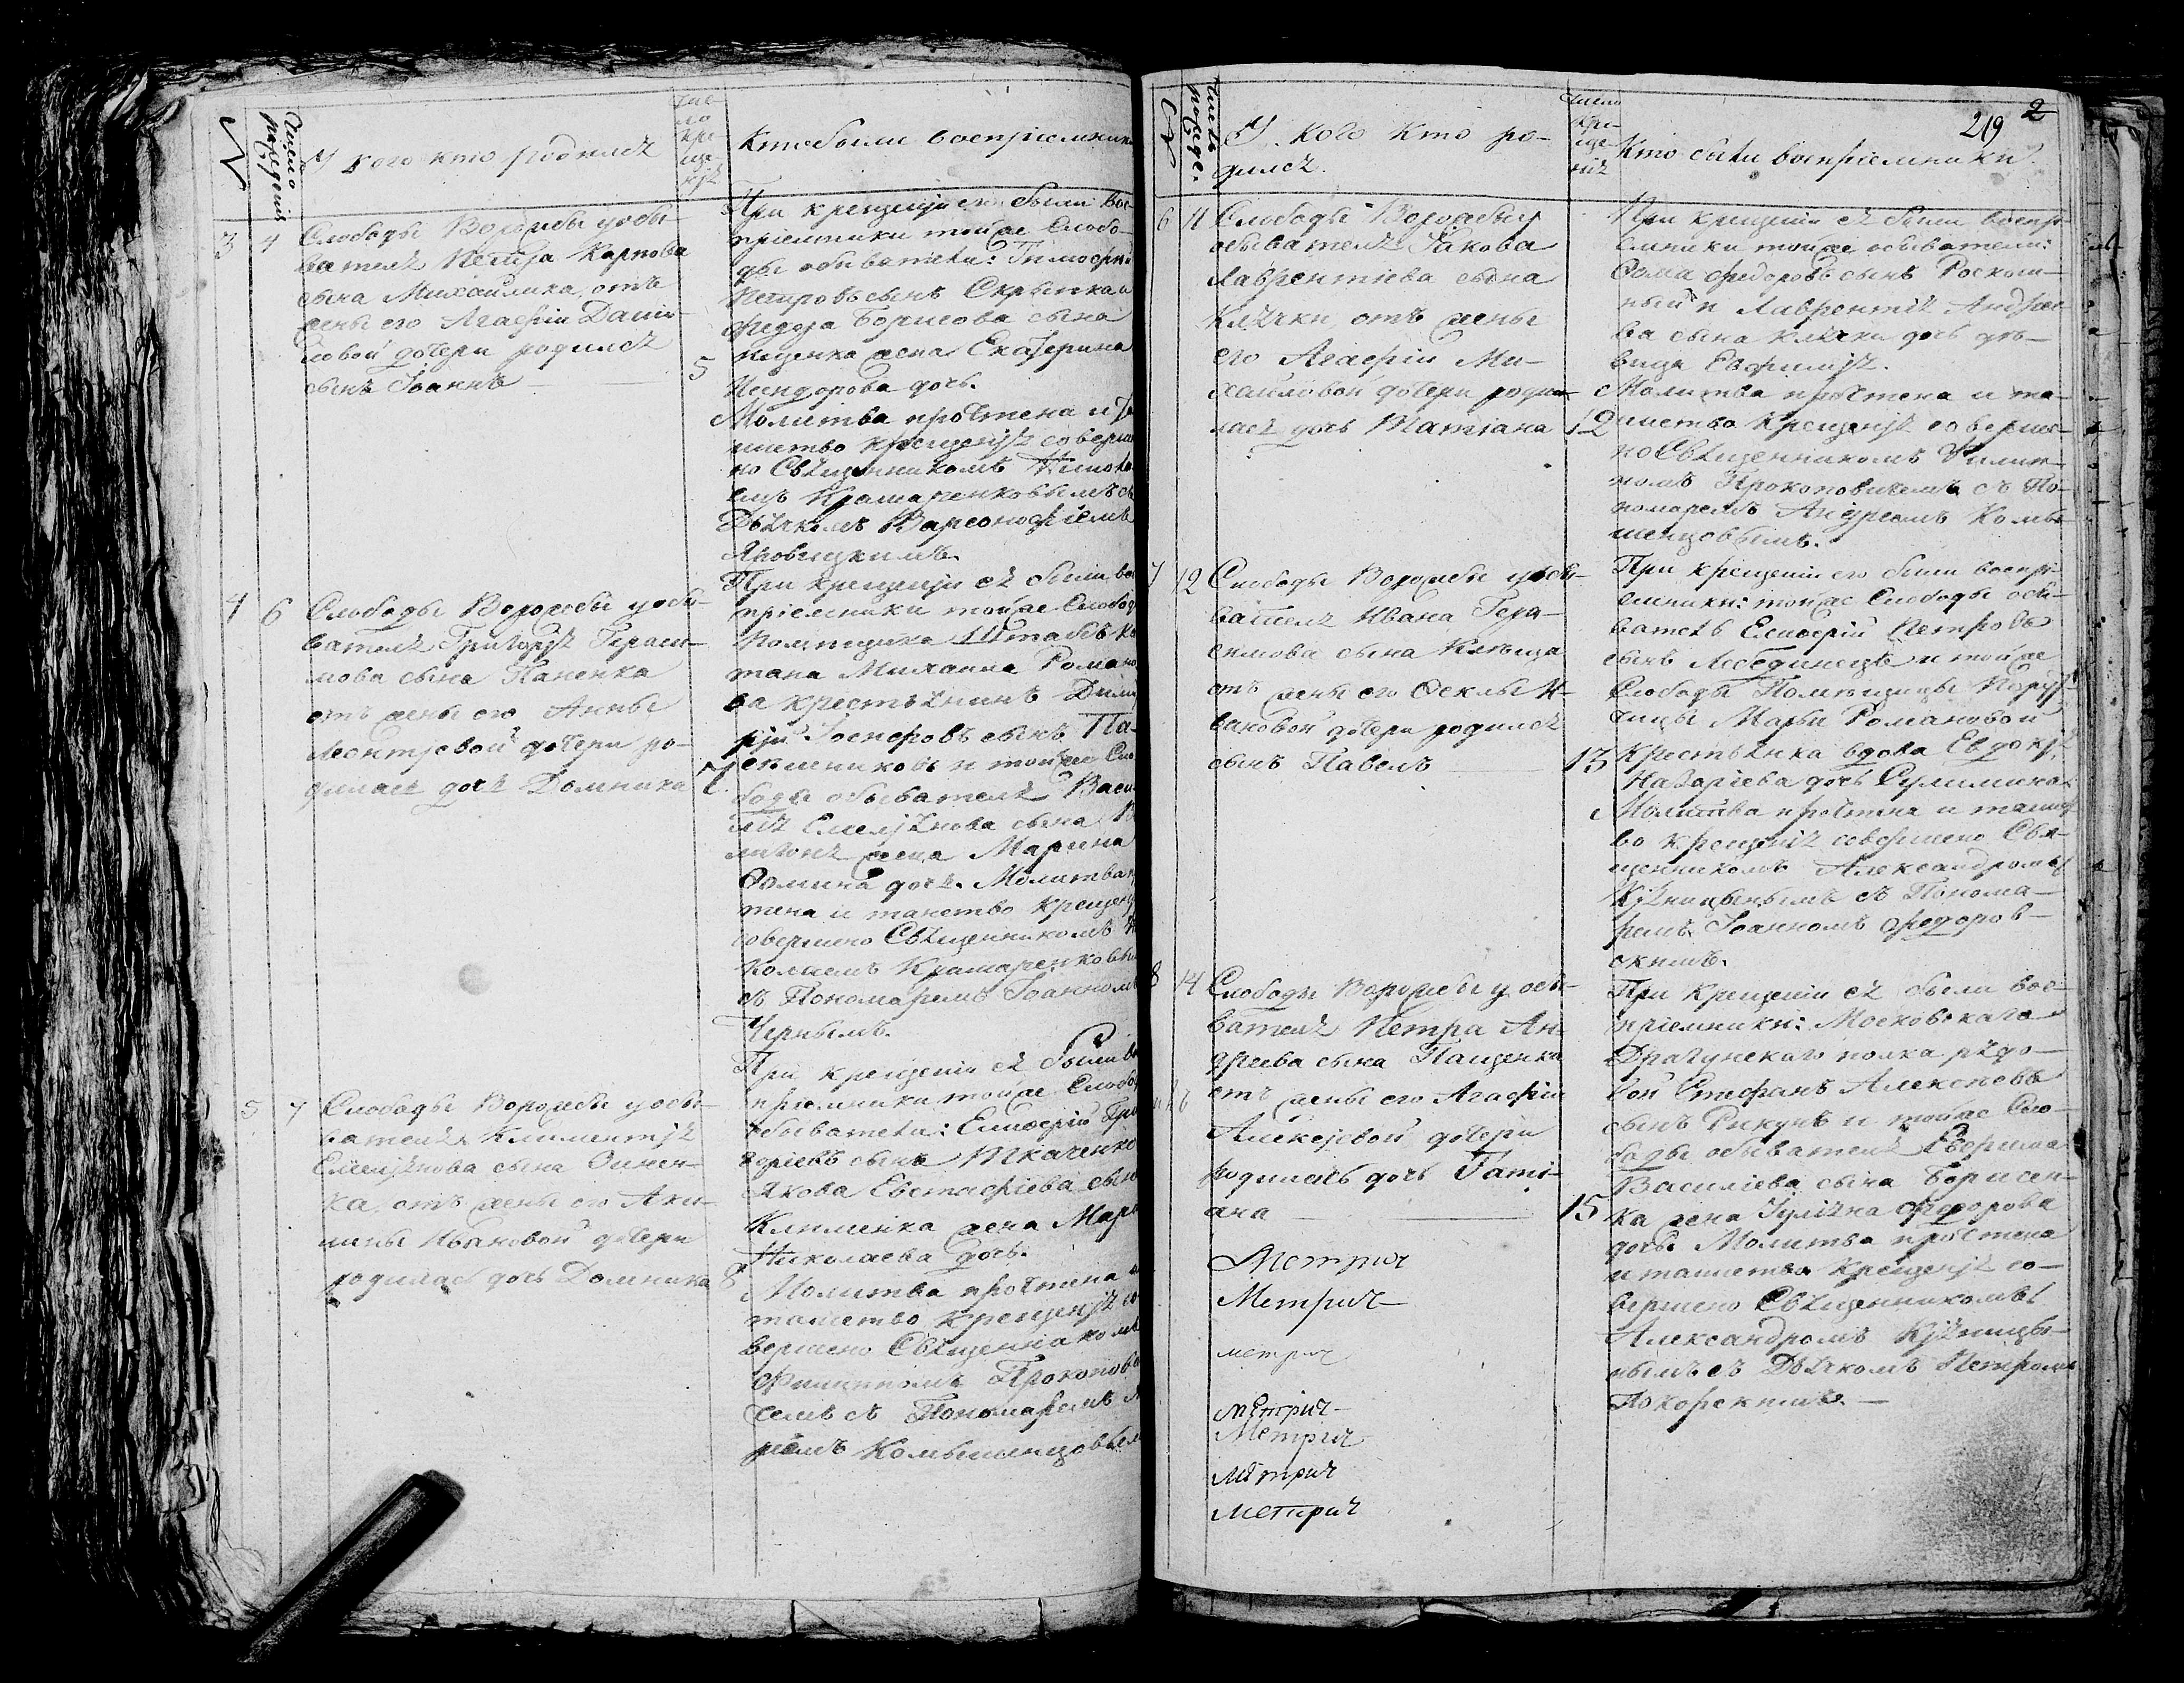 №
Число рожденія
У кого кто родился
Чис-
ло
кре-
ще-
нія
Кто были воспріемники
3 4
Слободы Ворожбы у обы-
вателя Петра Карпова
сына Михайлика, отъ
жены его Агафіи Дани-
ловой дочери родился
сынъ Іоаннъ
5
При крещеніи его были вос-
пріемники тойже Слобо-
ды обыватели: Тимофей
Петровъ сынъ Скрыпка и
Федора Борисова сына
жена Екатерина
дочь.
Молитва прочтена и та-
инство крещенія соверше-
но Священникомъ Никола-
емъ Крамаренковымъ съ
Дьячкомъ Варсонофіемъ
Яновицкимъ.
4 6
Слободы Ворожбы у обы-
вателя Григорія Гераси-
мова сына Паненка
отъ жены его Анны
Леонтіевой дочери ро-
дилась дочь Домника
7
При крещеніи ея были вос-
пріемники тойже Слободы
помещика Штабсъ Ка-
тана Михаила Романо-
ва крестьянинъ Дими-
рій Іосифовъ сынъ Па-
сѣшниковъ и тойже Сло-
боды обывателя Васи-
лія Емеліянова сына
жена Марина
Фомина дочь. Молитва
тена и таиство крещен
совершено Священникомъ Ни
колаемъ Крамаренковы
съ Пономаремъ Іоанномъ
Чернымъ.
5 7
Слободы Ворожбы у обы-
вателя Климентія
Емеліянова сына
ка, отъ жены его Аки-
лины Ивановой дочери
родилась дочь Домника
8
При крещеніи ея были во
пріемники тойже Слобод
обыватели: Елиферій Гри
горіевъ сынъ Ткаченко
Якова Евстафіева сына
Клименка жена Мар
Николаева дочь.
Молитва прочтена и
таинство крещенія со
вершено Священникомъ
Филиппомъ Прокопови
чемъ съ Пономаремъ
реемъ Комышенцовым
219 2
№
Число рожде.
У кого кто ро-
дился.
Число
кре-
ще-
нія
Кто были воспріемники.
6 11
Слободы Ворожбы у
обывателя Іакова
Лаврентіева сына
Клячки, отъ жены
его Агафіи Ми-
хайловой дочери роди-
лась дочь Татіана
12
При крещеніи ея были воспрі-
емники тойже обыватели:
Фома Федоровъ сынъ Роскош-
ный и Лаврентія Андрее-
ва сына Клячки дочь дѣ-
вица Евфимія.
Молитва прочтена и та-
инство крещенія соверше-
но Священникомъ Филип-
помъ Прокоповичемъ съ По-
номаремъ Андреемъ Комы-
шенцовымъ.
7 12
Слободы Ворожбы у обы-
вателя Ивана Гера-
симова сына
отъ жены его Феклы И-
вановой дочери родился
сынъ Павелъ
13
При крещеніи его были воспрі-
емники: тойже Слободы обы-
ватель Елиферій Петровъ
сынъ Лебединецъ и тойже
Слободы Помѣщицы Пору-
чицы Марьи Романовой
Крестьянка вдова Евдокія
Назаріева дочь Сулимина.
Молитва прочтена и таинст
во крещенія совершено Свя-
щенникомъ Александромъ
Куницынымъ съ Понома-
ремъ Іоанномъ Федоров-
скимъ.
8 14
Слободы Ворожбы у обы-
вателя Петра Ан-
дреева сына Пащенка
отъ жены его Агафіи
Алексѣевой дочери
родилась дочь Тати-
ана
15
При крещеніи ея были вос-
пріемники: Московскаго
Драгунскаго полка рядо-
вой Стефанъ Алексѣевъ
сынъ Рикунъ и тойже Сло-
боды обывателя Ефрима
Василіева сына Борисен-
ка жена Іуліяна Федорова
дочь. Молитва прочтена
и таинство крещенія со-
вершено Священникомъ
Александромъ Куницы-
нымъ съ Дьячкомъ Петромъ
Покорскимъ.
Метрич
Метрич
метрич
метрич
Метрич
Метрич
метрич